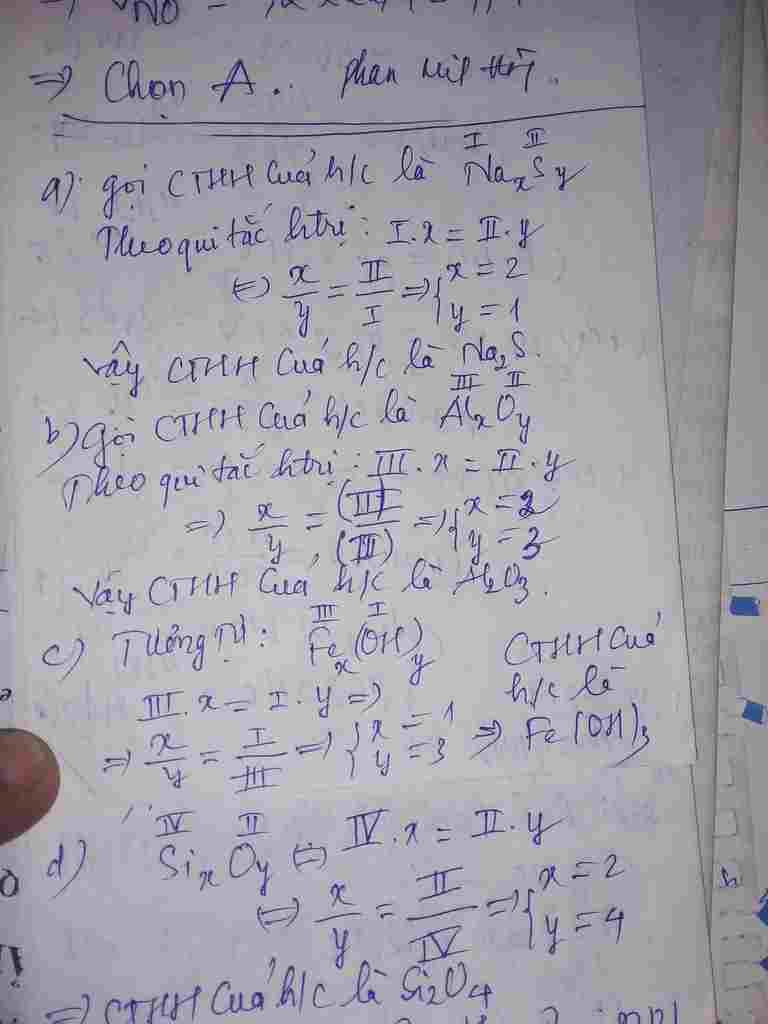 ⇒ Chọn A..
I II
a) gọi CTHH Của h/c là NaxSy
Theo qui tắc htrị: I.x = II.y
⇔ x/y = II/I ⇒ { x = 2 y = 1
Vậy CTHH Của h/c là Na2S.
III II
b) gọi CTHH Của h/c là AlxOy
Theo qui tắc htrị: III.x = II.y
⇒ x/y = (II)/(III) ⇒ { x = 2 y = 3
Vậy CTHH Của h/c là Al2O3.
III I
c) Tương Tự: Fex(OH)y
III.x = I.y ⇒
⇒ x/y = I/III ⇒ { x = 1 y = 3 ⇒ CTHH Của h/c là Fe(OH)3
IV II
d) SixOy ⇔ IV.x = II.y
⇔ x/y = II/IV ⇒ { x = 2 y = 4
⇒ CTHH Của h/c là Si2O4